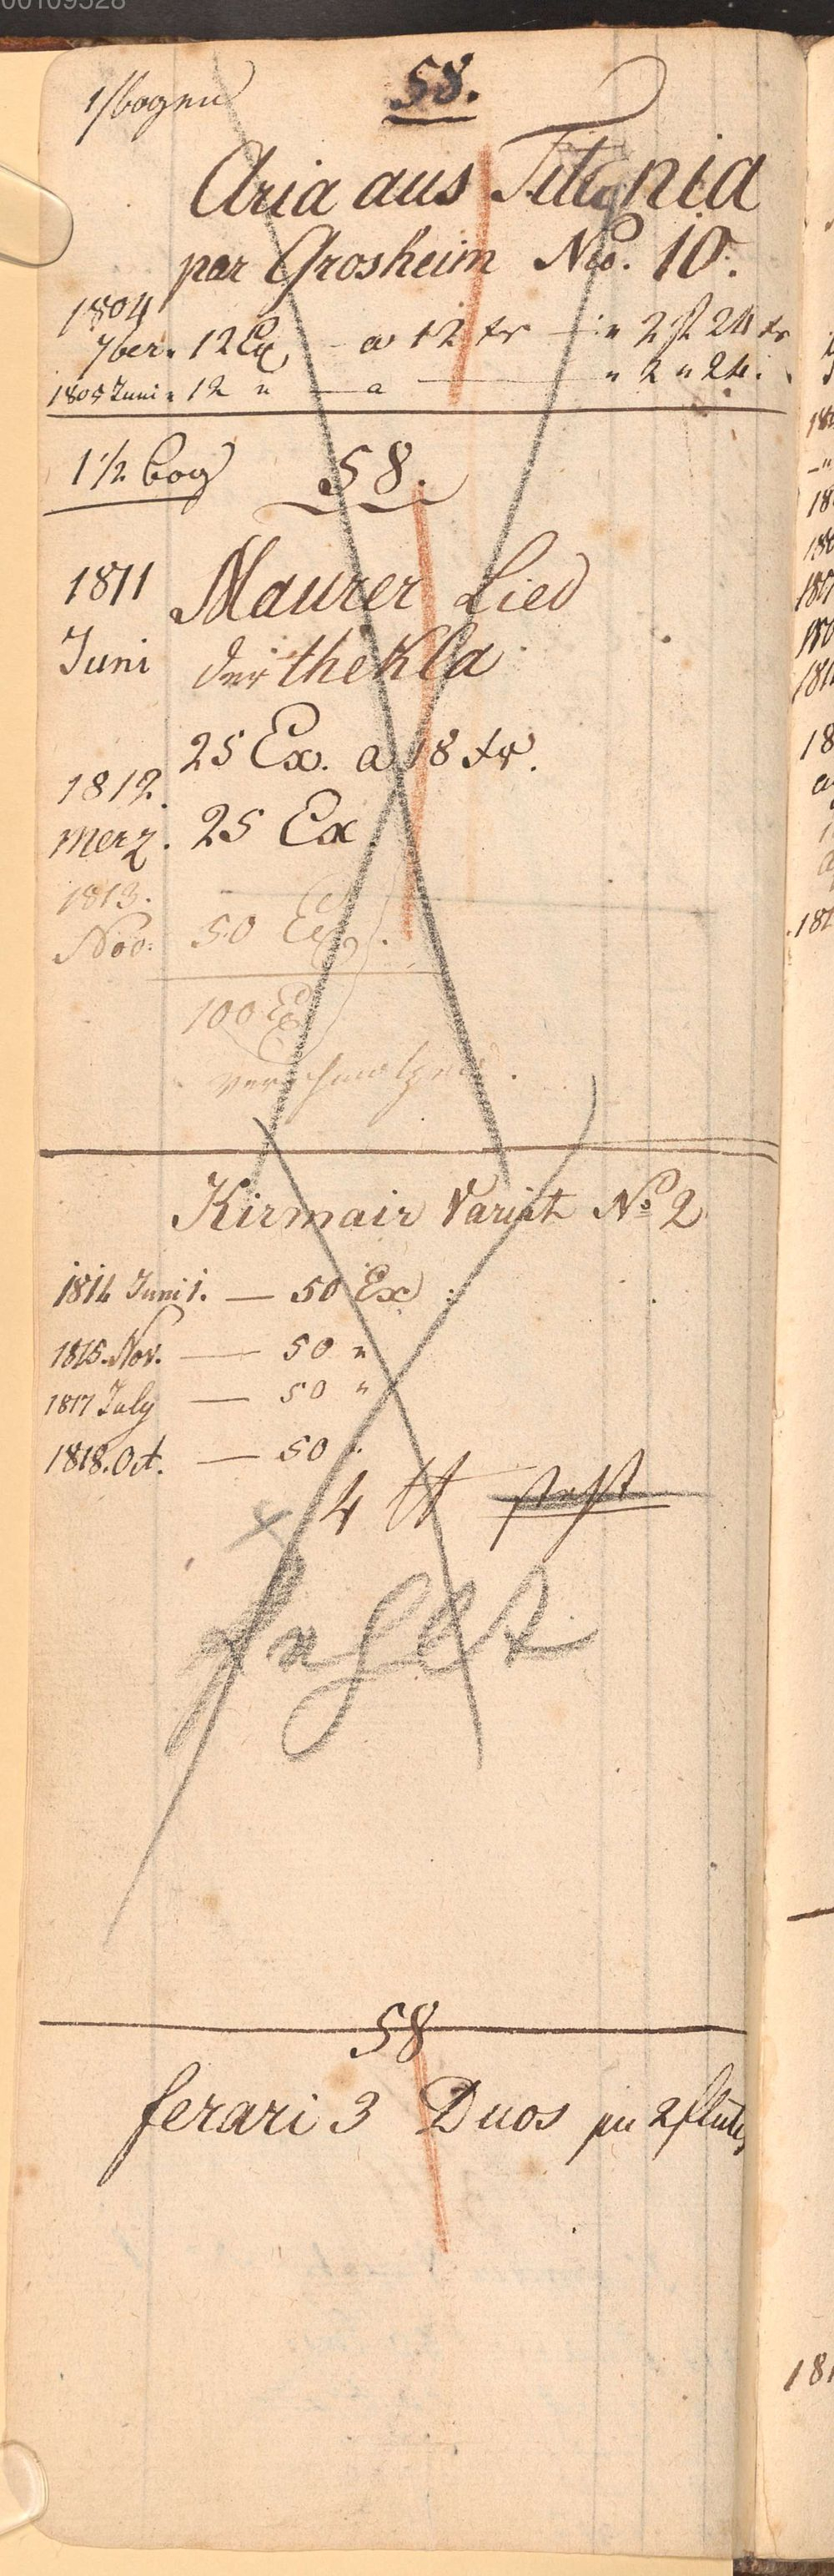 00109528
1/bogen
58.
Aria aus Titania
par Grosheim No. 10.
1804
7ber. 12 Ex a 12 xr " 2 fl 24 xr
1805 Juni " 12 " — a — " 2 " 24.
1 1/2 bog 58.
1811 Maurer Lied
Juni der thekla
25 Ex. a 18 xr.
1812.
Merz. 25 Ex
1813.
Nov: 50 Ex.
100 Ex
verschmolzen.
Kirmair Variat No 2
1814 Juni 1. — 50 Ex
1815. Nov. — 50 "
1817 July — 50 "
1818. Oct. — 50 "
4
58
ferari 3 Duos pu 2 flutes